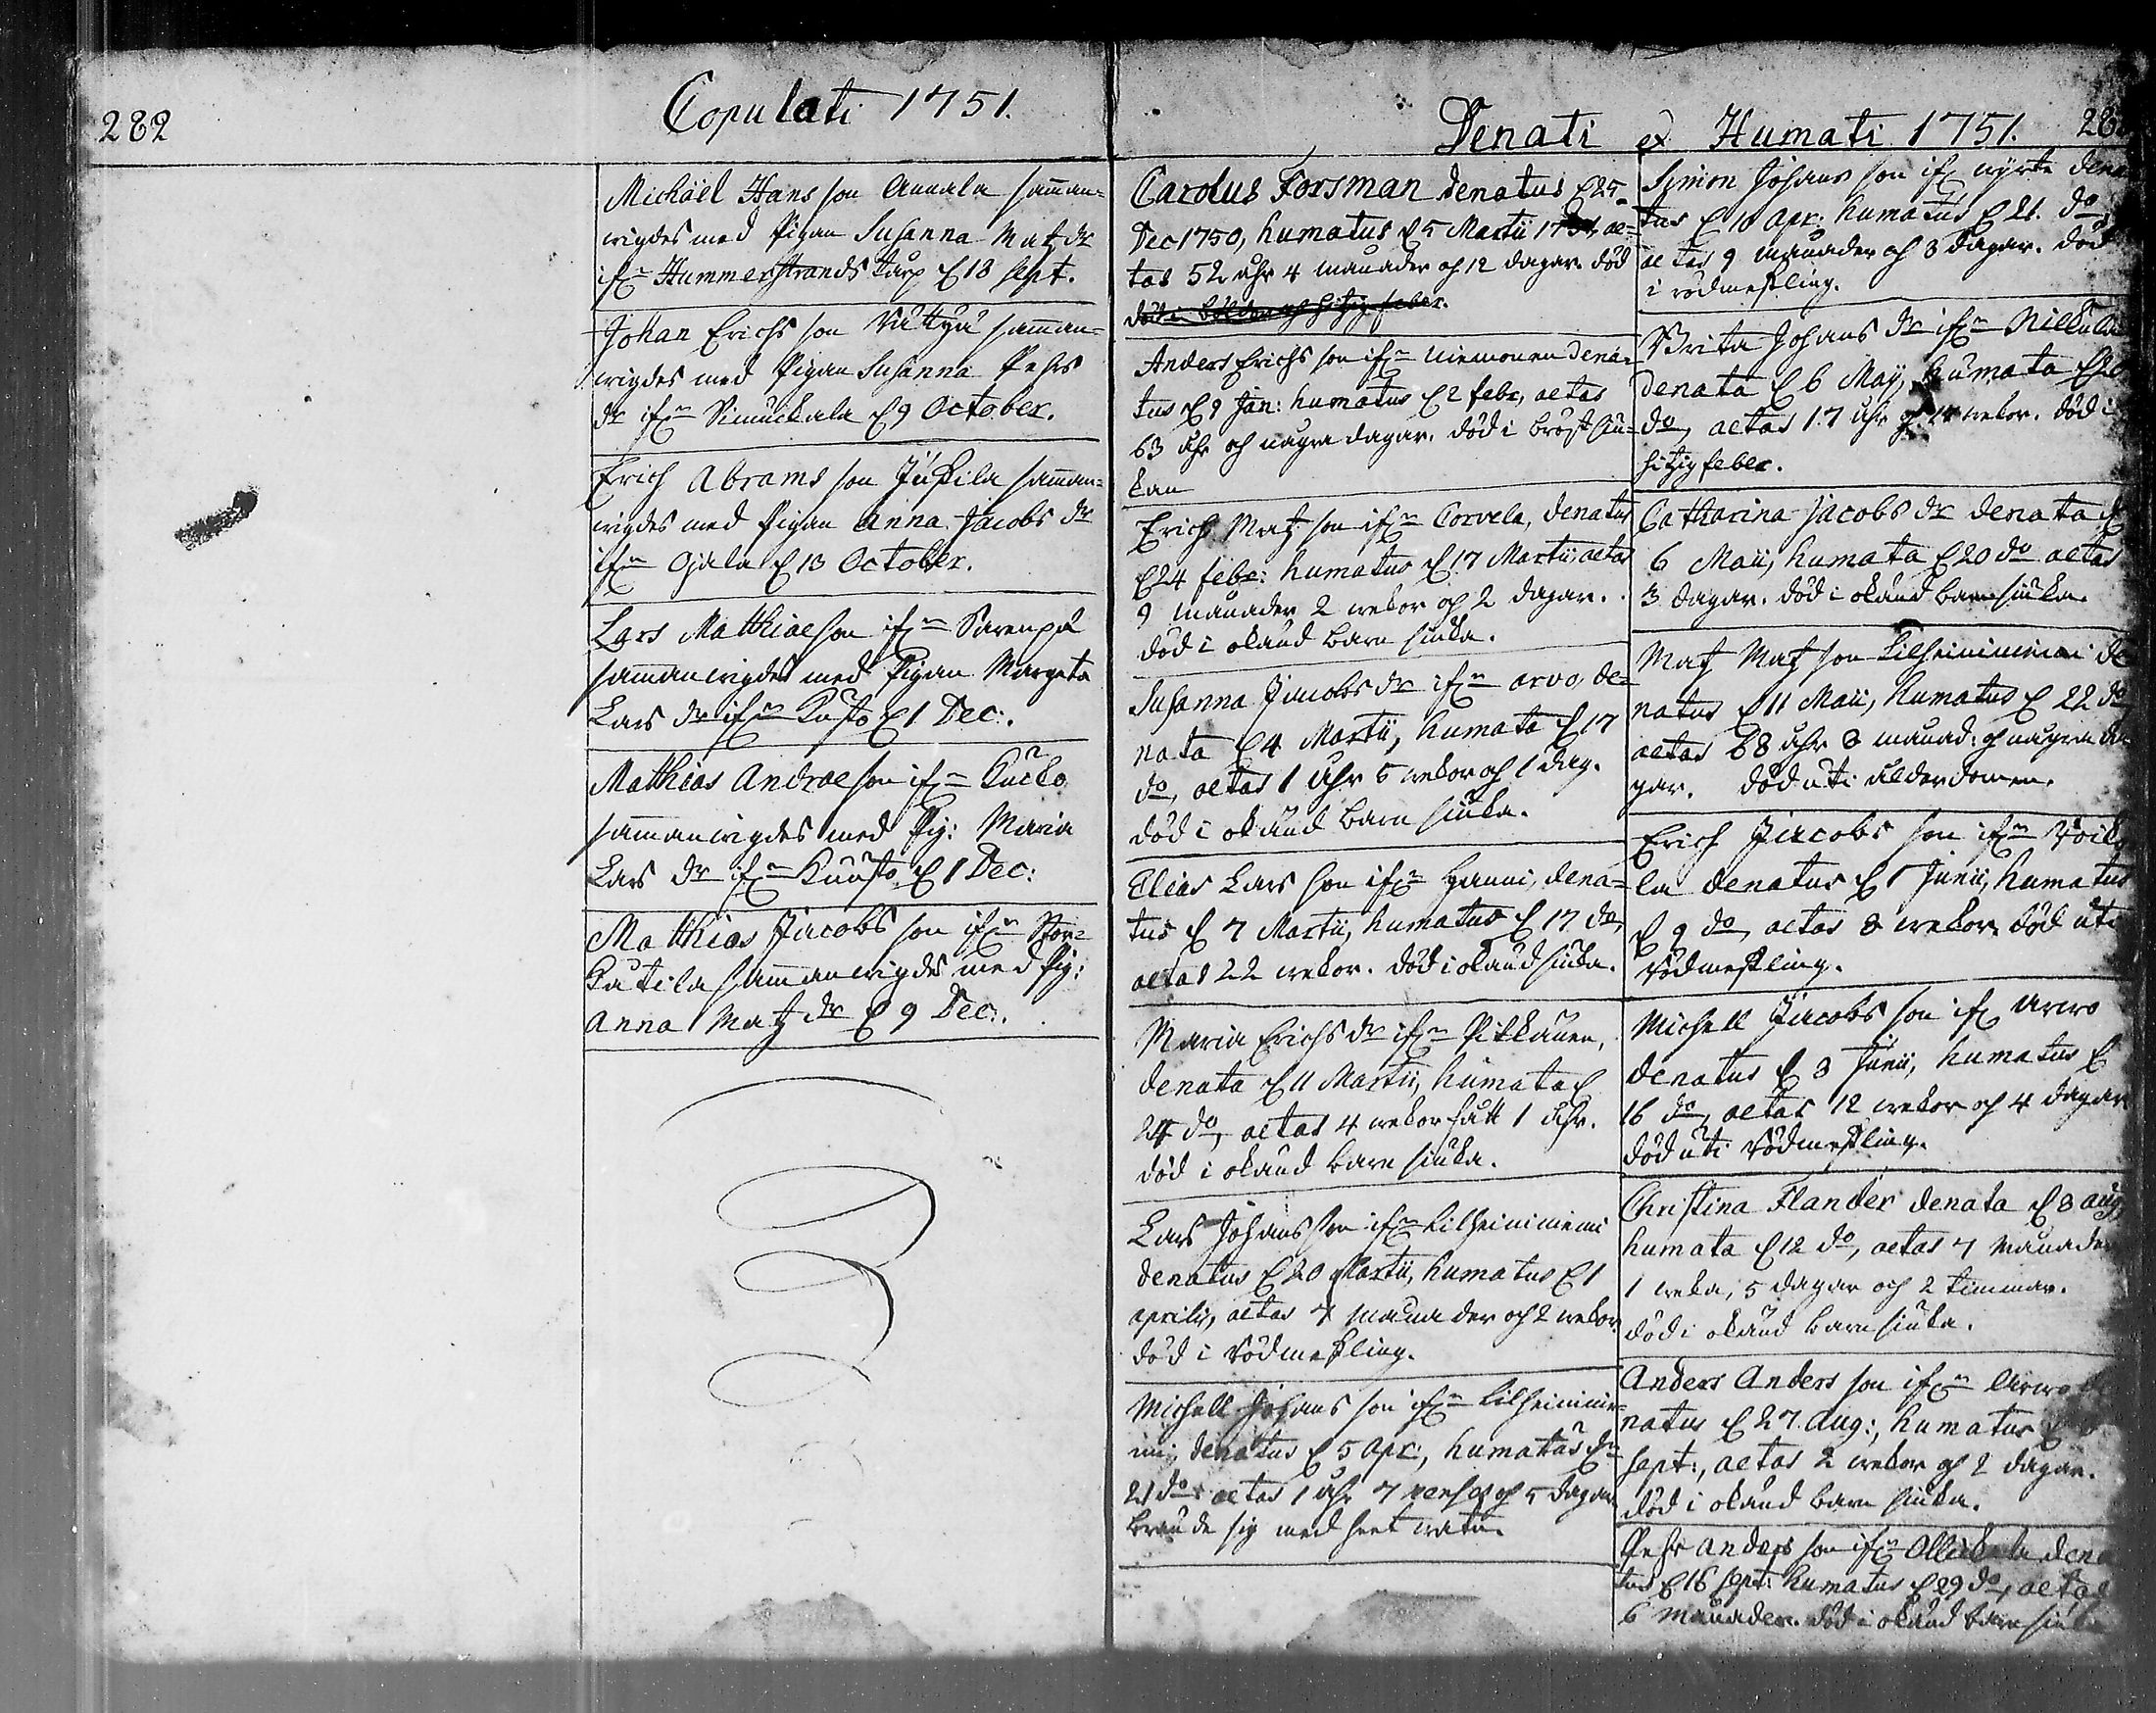 282
Copulati 1751.
Michäel Hans son Annala samman-
wigdes med Pigan Susanna Matz dr
ifrn Hummerstrands torp d 18 Sept.
Johan Erichs son samman-
wigdes med Pigan Susanna Pehrs
dr ifrn d 9 October.
Erich Abrams son samman-
wigdes med Pigan Anna Jacobs dr
ifrn Ojala d 13 October.
Lars Matthiae son ifrn
sammanwigdes med Pigan Margeta
Lars dr ifrn d 1 Dec:.
Matthias Andrae son ifrn
sammanwigdes med Pig: Maria
Lars dr ifrn d 1 Dec:
Matthias Jacobs son ifrn Stor-
kutila sammanwigdes med Pig:
Anna Matz dr d 9 Dec:.
Denati et Humati 1751.
Carolus Forsman denatus d 25
Dec 1750, humatus d 5 Martii 1751, ae-
tas 52 åhr 4 månader och 12 dagar. död
död i och hitzig feber.
Anders Erichs son ifrn Niemonen dena-
tus d 9 Jan: humatus d 2 febr, aetas
63 åhr och någre dagar. död i bröst siu-
kan
Erich Matz son ifrn Corvela, denatus
d 24 febr: humatus d 17 Martii, aetas
9 månader 2 wekor och 2 dagar.
död i okänd barn siuka.
Susanna Jacobs dr ifrn Arvo, de-
nata d 4 Martii, humata d 17
do, aetas 1 åhr 5 wekor och 1 dag.
död i okänd barn siuka.
Elias Lars son ifrn Hanni, dena-
tus d 7 Martii, humatus d 17 do,
aetas 22 wekor. död i okänd siuka.
Maria Erichs dr ifrn Pikkanen,
denata d 11 Martii, humata d
24 do, aetas 4 wekor fatt 1 åhr.
död i okänd barn siuka.
Lars Johans son ifrn Lilheiniemi
denatus d 20 Martii, humatus d 1
aprilis, aetas 7 månader och 2 wekor
död i Rödmessling.
Michell Johans son ifrn Lilheinnie-
mi, denatus d 5 Apr:, humatus dn
21 do aetas 1 åhr 7 och 5 dagar
brände sig med heet watn.
Symon Johans son ifrn dena
tus d 10 Apr: humatus d 21. do,
aetas 9 månader och 3 dagar. död
i rödmessling.
Brita Johans dr ifrn
denata d 6 Maij, humata d 20
do, aetas 17 åhr och 14 wekor. död i
hitzig feber.
Catharina Jacobs dr denata d
6 Maii, humata d 20 do aetas
3 dagar. död i okänd barnsiuka.
Matz Matz son Lilheiniemi de
natus d 11 Maii, humatus d 22 do
aetas 68 åhr 8 månad: och någre da
gar. död uti ålderdomen.
Erich Jacobs son ifrn Voik
la denatus d 1 Junii, humatus
d 9 do, aetas 8 wekor, död uti
Rödmessling.
Michell Jacobs son ifrn Arwo
denatus d 3 Junii, humatus d
16 do, aetas 12 wekor och 4 dagar
död uti Rödmessling.
Christina Flander denata d 3 aug
humata d 12 do, aetas 7 månader
1 weka, 5 dagar och 2 timmar.
död i okänd barn siuka.
Anders Anders son ifrn Arwo
natus d 27. Aug:, humatus d
Sept:, aetas 2 wekor och 2 dagar.
död i okänd barn siuka.
Pehr Anders son ifrn Ollikala dena
tus d 16 Sept: humatus d 29 do, aetas
6 månader. död i okänd barn siuka